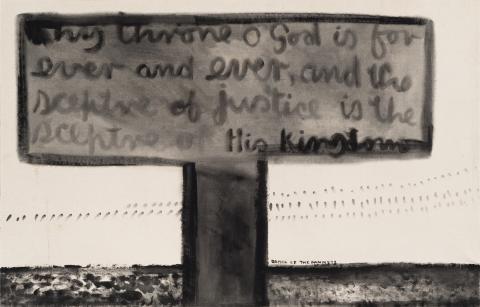 Thy throne O God is for
ever and ever, and the
sceptre of justice is the
sceptre of His Kingdom
DANCE OF THE GANNETS